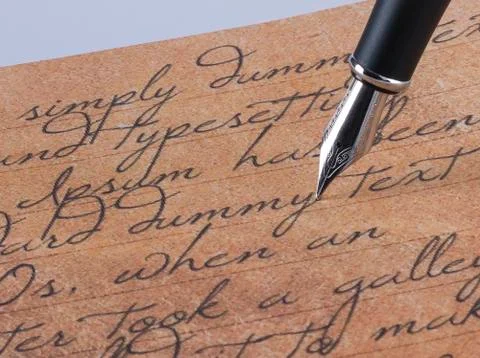 simply dumm
and typesetti
Ipsum has been
dard dummy text
0s, when an
ter took a galley
to mak